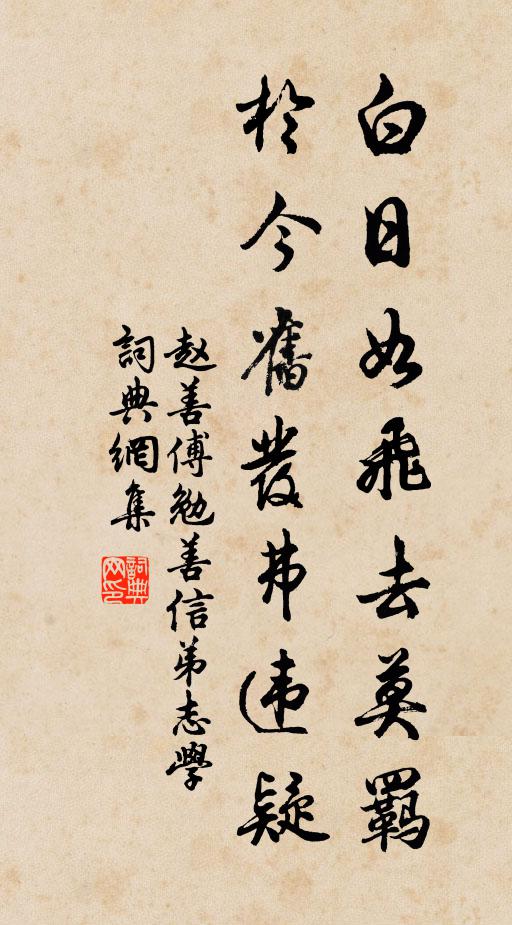 白日如飛去莫羈
於今奮發弗违疑
赵善傅勉善信弟志學
詞典網集
詞典网印